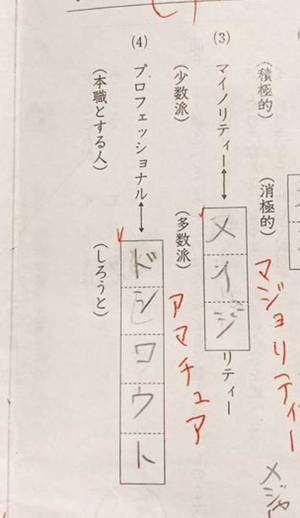 (積極的)
(消極的)
マジョリティー
メジャー
(3) マイノリティー↔メイジリティー
(少数派)
(多数派)
アマチュア
(4) プロフェッショナル↔ドシロウト
(本職とする人)
(しろうと)